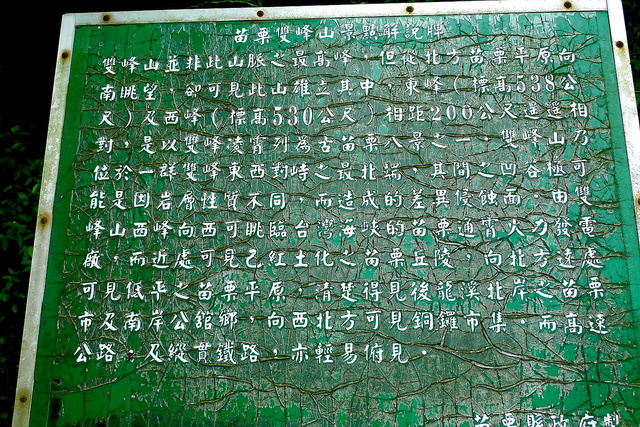 苗栗雙峰山景點解說牌
雙峰山並非此山脈之最高峰，但從北方苗栗平原向
南眺望，卻可見此山雄立其中，東峰（標高538公
尺）及西峰（標高530公尺）相距200公尺遙遙相
對，是以雙峰凌霄列為古苗栗八景之一。雙峰山乃
位於一群雙峰東西對峙之最北端，其間之凹谷極可
能是因岩層性質不同，而造成的差異侵蝕面，由雙
峰山西峰向西可眺臨台灣海峽的苗栗通霄火力發電
廠，而近處可見已紅土化之苗栗丘陵，向北方遠處
可見低平之苗栗平原，清楚得見後龍溪北岸之苗栗
市及南岸公館鄉，向西北方可見銅鑼市集，而高速
公路，及縱貫鐵路，亦輕易俯見。
苗栗縣政府製